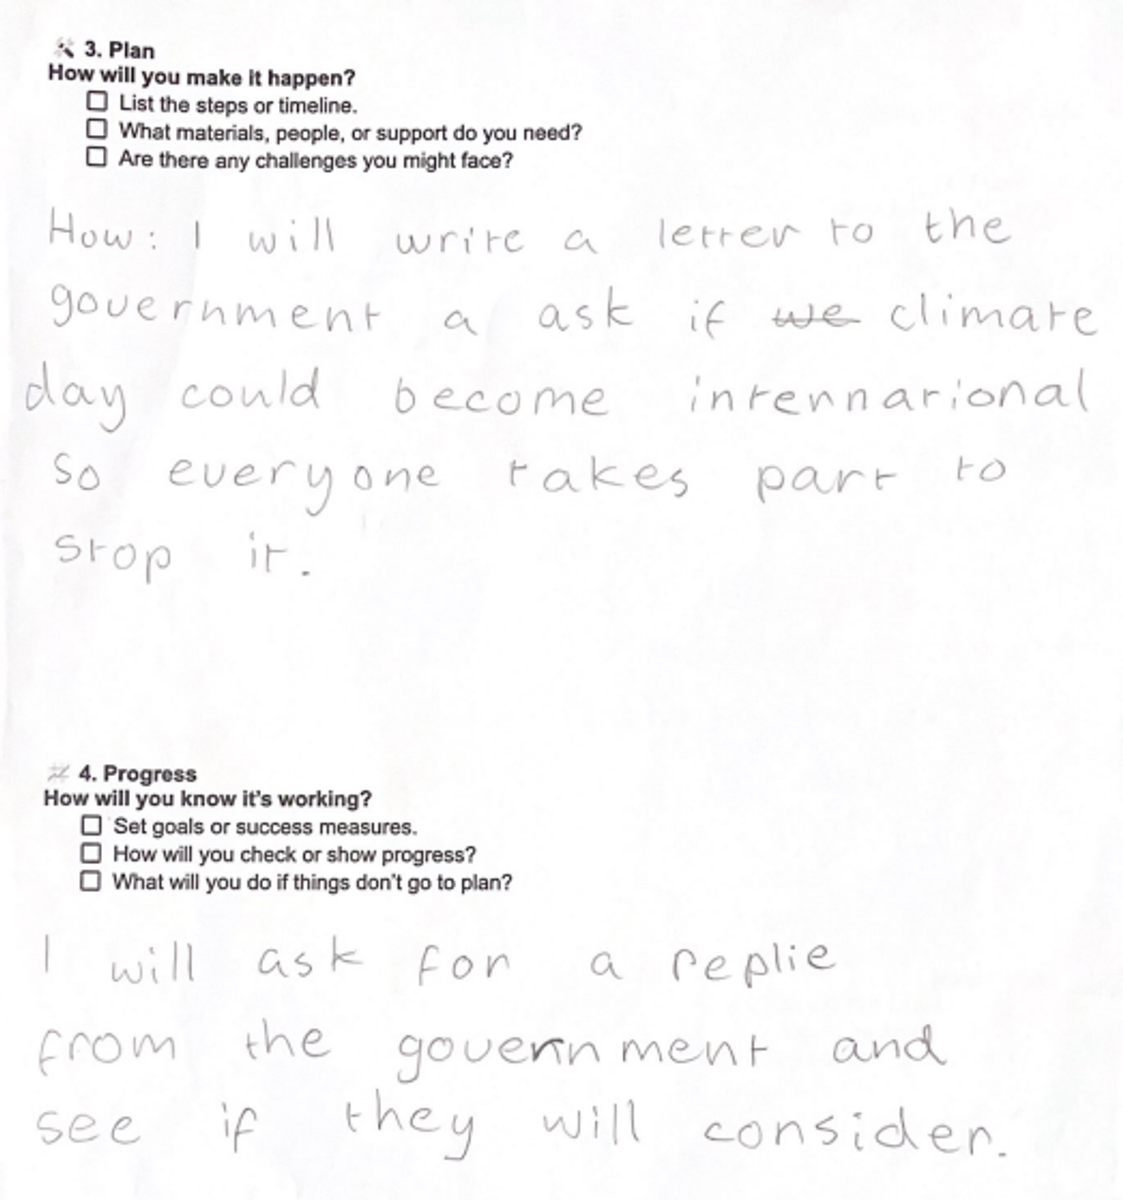 3. Plan
How will you make it happen?
☐ List the steps or timeline.
☐ What materials, people, or support do you need?
☐ Are there any challenges you might face?
How: I will write a letter to the
government a ask if ~~we~~ climate
day could become internnational
so everyone takes part to
stop it.
4. Progress
How will you know it's working?
☐ Set goals or success measures.
☐ How will you check or show progress?
☐ What will you do if things don't go to plan?
I will ask for a replie
from the government and
see if they will consider.